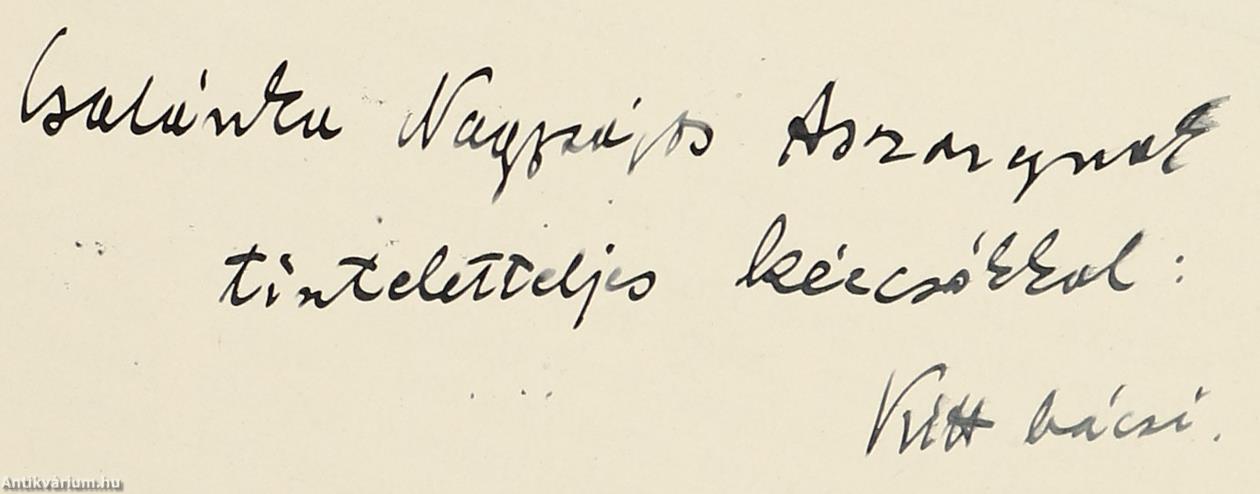 Csalánka Nagysájós Asszonynak
tiszteletteljes kézcsókkal:
Kitt bácsi.
Antikvárium.hu